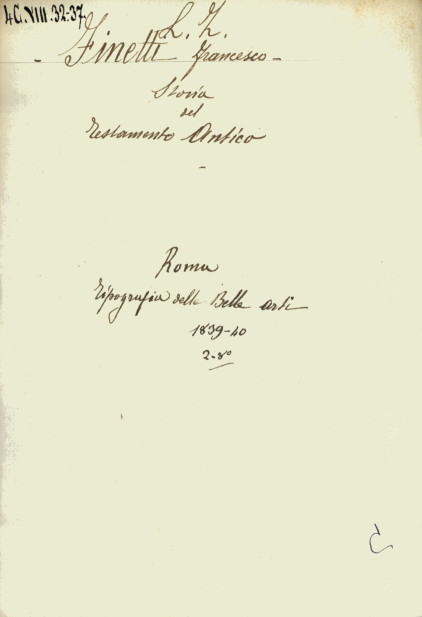 4G.VIII.32-37
- Finetti Francesco -
Storia
del
Testamento Antico
-
Roma
Tipografia delle Belle arti
1839-40
2-8º